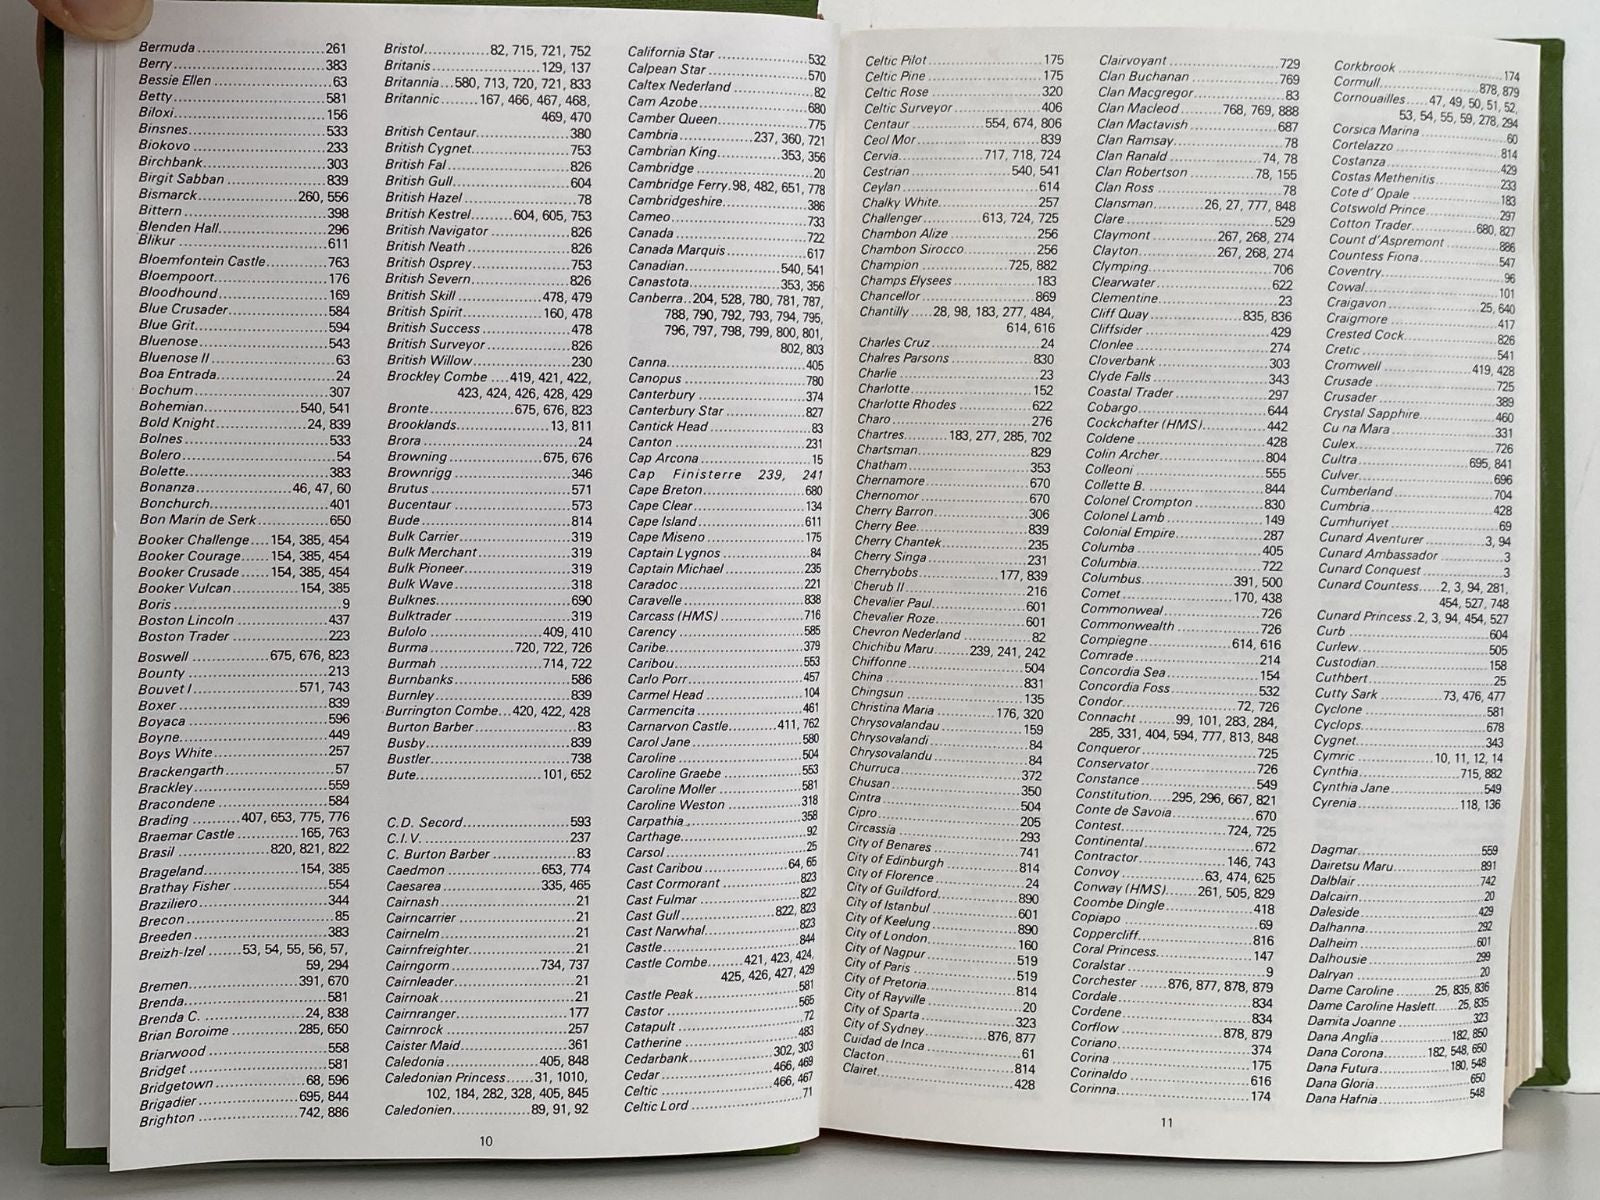 Bermuda 261
Berry 383
Bessie Ellen 63
Betty 581
Biloxi 156
Binsnes 533
Biokovo 233
Birchbank 303
Birgit Sabban 839
Bismarck 260, 556
Bittern 398
Blenden Hall 296
Blikur 611
Bloemfontein Castle 763
Bloempoort 176
Bloodhound 169
Blue Crusader 584
Blue Grit 594
Bluenose 543
Bluenose II 63
Boa Entrada 24
Bochum 307
Bohemian 540, 541
Bold Knight 24, 839
Bolnes 533
Bolero 54
Bolette 383
Bonanza 46, 47, 60
Bonchurch 401
Bon Marin de Serk 650
Booker Challenge 154, 385, 454
Booker Courage 154, 385, 454
Booker Crusade 154, 385, 454
Booker Vulcan 154, 385
Boris 9
Boston Lincoln 437
Boston Trader 223
Boswell 675, 676, 823
Bounty 213
Bouvet I 571, 743
Boxer 839
Boyaca 596
Boyne 449
Boys White 257
Brackengarth 57
Brackley 559
Bracondene 584
Brading 407, 653, 775, 776
Braemar Castle 165, 763
Brasil 820, 821, 822
Brageland 154, 385
Brathay Fisher 554
Braziliero 344
Brecon 85
Breeden 383
Breizh-Izel 53, 54, 55, 56, 57,
59, 294
Bremen 391, 670
Brenda 581
Brenda C. 24, 838
Brian Boroime 285, 650
Briarwood 558
Bridget 581
Bridgetown 68, 596
Brigadier 695, 844
Brighton 742, 886
Bristol 82, 715, 721, 752
Britanis 129, 137
Britannia 580, 713, 720, 721, 833
Britannic 167, 466, 467, 468,
469, 470
British Centaur 380
British Cygnet 753
British Fal 826
British Gull 604
British Hazel 78
British Kestrel 604, 605, 753
British Navigator 826
British Neath 826
British Osprey 753
British Severn 826
British Skill 478, 479
British Spirit 160, 478
British Success 478
British Surveyor 826
British Willow 230
Brockley Combe 419, 421, 422,
423, 424, 426, 428, 429
Bronte 675, 676, 823
Brooklands 13, 811
Brora 24
Browning 675, 676
Brownrigg 346
Brutus 571
Bucentaur 573
Bude 814
Bulk Carrier 319
Bulk Merchant 319
Bulk Pioneer 319
Bulk Wave 318
Bulknes 690
Bulktrader 319
Bulolo 409, 410
Burma 720, 722, 726
Burmah 714, 722
Burnbanks 586
Burnley 839
Burrington Combe 420, 422, 428
Burton Barber 83
Busby 839
Bustler 738
Bute 101, 652
C.D. Secord 593
C.I.V. 237
C. Burton Barber 83
Caedmon 653, 774
Caesarea 335, 465
Cairnash 21
Cairncarrier 21
Cairnelm 21
Cairnfreighter 21
Cairngorm 734, 737
Cairnleader 21
Cairnoak 21
Cairnranger 177
Cairnrock 257
Caister Maid 361
Caledonia 405, 848
Caledonian Princess 31, 1010,
102, 184, 282, 328, 405, 845
Caledonien 89, 91, 92
California Star 532
Calpean Star 570
Caltex Nederland 82
Cam Azobe 680
Camber Queen 775
Cambria 237, 360, 721
Cambrian King 353, 356
Cambridge 20
Cambridge Ferry 98, 482, 651, 778
Cambridgeshire 386
Cameo 733
Canada 722
Canada Marquis 617
Canadian 540, 541
Canastota 353, 356
Canberra 204, 528, 780, 781, 787,
788, 790, 792, 793, 794, 795,
796, 797, 798, 799, 800, 801,
802, 803
Canna 405
Canopus 780
Canterbury 374
Canterbury Star 827
Cantick Head 83
Canton 231
Cap Arcona 15
Cap Finisterre 239, 241
Cape Breton 680
Cape Clear 134
Cape Island 611
Cape Miseno 175
Captain Lygnos 84
Captain Michael 235
Caradoc 221
Caravelle 838
Carcass (HMS) 716
Carency 585
Caribe 379
Caribou 553
Carlo Porr 457
Carmel Head 104
Carmencita 461
Carnarvon Castle 411, 762
Carol Jane 580
Caroline 504
Caroline Graebe 553
Caroline Moller 581
Caroline Weston 318
Carpathia 358
Carthage 92
Carsol 25
Cast Caribou 64, 65
Cast Cormorant 823
Cast Fulmar 822
Cast Gull 822, 823
Cast Narwhal 823
Castle 844
Castle Combe 421, 423, 424,
425, 426, 427, 429
Castle Peak 581
Castor 565
Catapult 72
Catherine 483
Cedarbank 302, 303
Cedar 466, 469
Celtic 466, 467
Celtic Lord 71
10
Celtic Pilot 175
Celtic Pine 175
Celtic Rose 320
Celtic Surveyor 406
Centaur 554, 674, 806
Ceol Mor 839
Cervia 717, 718, 724
Cestrian 540, 541
Ceylan 614
Chalky White 257
Challenger 613, 724, 725
Chambon Alize 256
Chambon Sirocco 256
Champion 725, 882
Champs Elysees 183
Chancellor 869
Chantilly 28, 98, 183, 277, 484,
614, 616
Charles Cruz 24
Chalres Parsons 830
Charlie 23
Charlotte 152
Charlotte Rhodes 622
Charo 276
Chartres 183, 277, 285, 702
Chartsman 829
Chatham 353
Chernamore 670
Chernomor 670
Cherry Barron 306
Cherry Bee 839
Cherry Chantek 235
Cherry Singa 231
Cherrybobs 177, 839
Cherub II 216
Chevalier Paul 601
Chevalier Roze 601
Chevron Nederland 82
Chichibu Maru 239, 241, 242
Chiffonne 504
China 831
Chingsun 135
Christina Maria 176, 320
Chrysovalandau 159
Chrysovalandi 84
Chrysovalandu 84
Churruca 372
Chusan 350
Cintra 504
Cipro 205
Circassia 293
City of Benares 741
City of Edinburgh 814
City of Florence 24
City of Guildford 890
City of Istanbul 601
City of Keelung 890
City of London 160
City of Nagpur 519
City of Paris 519
City of Pretoria 814
City of Rayville 20
City of Sparta 323
City of Sydney 876, 877
Cuidad de Inca 61
Clacton 814
Clairet 428
Clairvoyant 729
Clan Buchanan 769
Clan Macgregor 83
Clan Macleod 768, 769, 888
Clan Mactavish 687
Clan Ramsay 78
Clan Ranald 74, 78
Clan Robertson 78, 155
Clan Ross 78
Clansman 26, 27, 777, 848
Clare 529
Claymont 267, 268, 274
Clayton 267, 268, 274
Clymping 706
Clearwater 622
Clementine 23
Cliff Quay 835, 836
Cliffsider 429
Clonlee 274
Cloverbank 303
Clyde Falls 343
Coastal Trader 297
Cobargo 644
Cockchafter (HMS) 442
Coldene 428
Colin Archer 804
Colleoni 555
Collette B. 844
Colonel Crompton 830
Colonel Lamb 149
Colonial Empire 287
Columba 405
Columbia 722
Columbus 391, 500
Comet 170, 438
Commonweal 726
Commonwealth 726
Compiegne 614, 616
Comrade 214
Concordia Sea 154
Concordia Foss 532
Condor 72, 726
Connacht 99, 101, 283, 284,
285, 331, 404, 594, 777, 813, 848
Conqueror 725
Conservator 726
Constance 549
Constitution 295, 296, 667, 821
Conte de Savoia 670
Contest 724, 725
Continental 672
Contractor 146, 743
Convoy 63, 474, 625
Conway (HMS) 261, 505, 829
Coombe Dingle 418
Copiapo 69
Coppercliff 816
Coral Princess 147
Coralstar 9
Corchester 876, 877, 878, 879
Cordale 834
Cordene 834
Corflow 878, 879
Coriano 374
Corina 175
Corinaldo 616
Corinna 174
Corkbrook 174
Cormull 878, 879
Cornouailles 47, 49, 50, 51, 52,
53, 54, 55, 59, 278, 294
Corsica Marina 60
Cortelazzo 814
Costanza 429
Costas Methenitis 233
Cote d' Opale 183
Cotswold Prince 297
Cotton Trader 680, 827
Count d'Aspremont 886
Countess Fiona 547
Coventry 96
Cowal 101
Craigavon 25, 640
Craigmore 417
Crested Cock 826
Cretic 541
Cromwell 419, 428
Crusade 725
Crusader 389
Crystal Sapphire 460
Cu na Mara 331
Culex 726
Cultra 695, 841
Culver 696
Cumberland 704
Cumbria 428
Cumhuriyet 69
Cunard Aventurer 3, 94
Cunard Ambassador 3
Cunard Conquest 3
Cunard Countess 2, 3, 94, 281,
454, 527, 748
Cunard Princess 2, 3, 94, 454, 527
Curb 604
Curlew 505
Custodian 158
Cuthbert 25
Cutty Sark 73, 476, 477
Cyclone 581
Cyclops 678
Cygnet 343
Cymric 10, 11, 12, 14
Cynthia 715, 882
Cynthia Jane 549
Cyrenia 118, 136
Dagmar 559
Dairetsu Maru 891
Dalblair 742
Dalcairn 20
Daleside 429
Dalhanna 292
Dalheim 601
Dalhousie 299
Dalryan 20
Dame Caroline 25, 835, 836
Dame Caroline Haslett 25, 835
Damita Joanne 323
Dana Anglia 182, 850
Dana Corona 182, 548, 650
Dana Futura 180, 548
Dana Gloria 650
Dana Hafnia 548
11